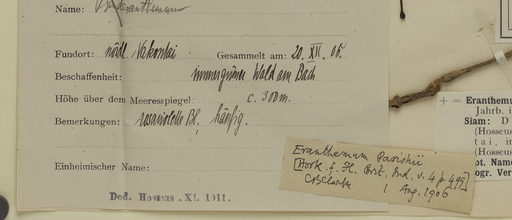 Name: Eranthemum
Fundort: nördl. Nakontai Gesammelt am: 20. XII. 05.
Beschaffenheit: immergrüner Wald am Bach
Höhe über dem Meeresspiegel: c. 300m.
Bemerkungen: rosaviolette Bl., häufig.
Einheimischer Name:
Ded. Hosseus .XI. 1911.
Eranthemum Parishii
[Hook. f. Fl. Brit. Ind. v. 4 p 499]
CBClarke 1 Aug. 1906
+ = Eranthemu
Jahrb. i
Siam: D
(Hosseus
tai, in
(Hosseus
pt. Nam
ogr. Ver